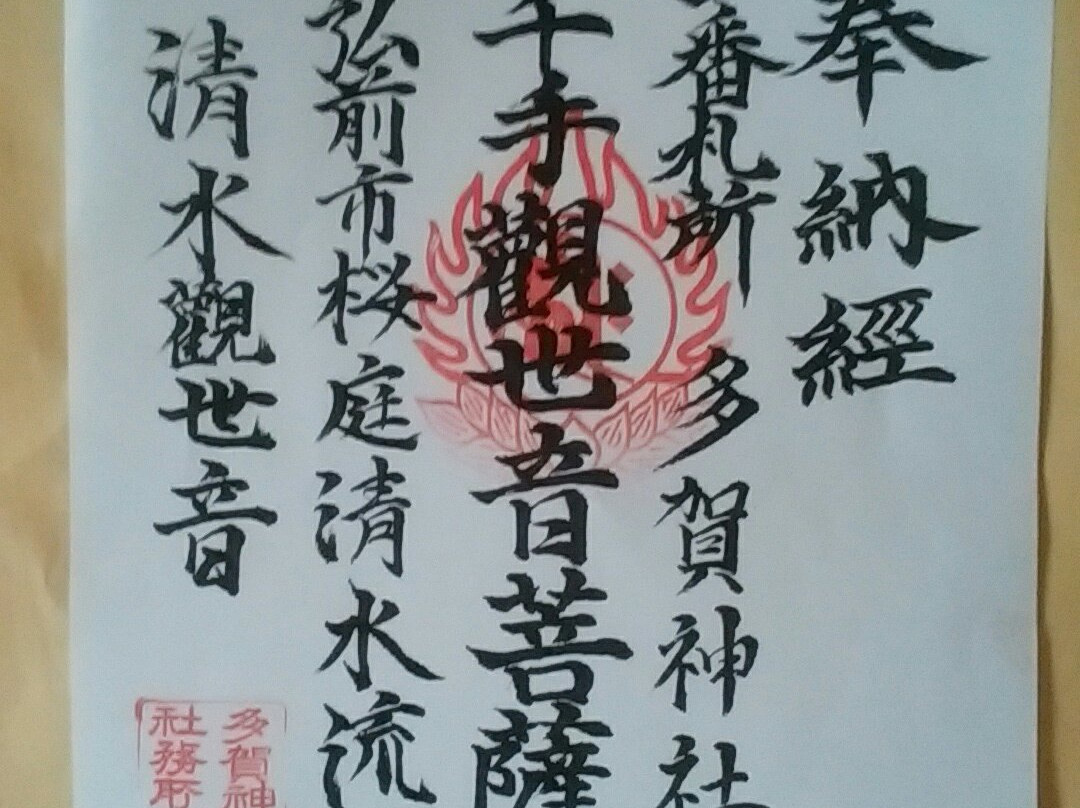 奉納經
番札所 多賀神社
千手觀世音菩薩
弘前市桜庭清水流
清水觀世音
多賀神
社務所